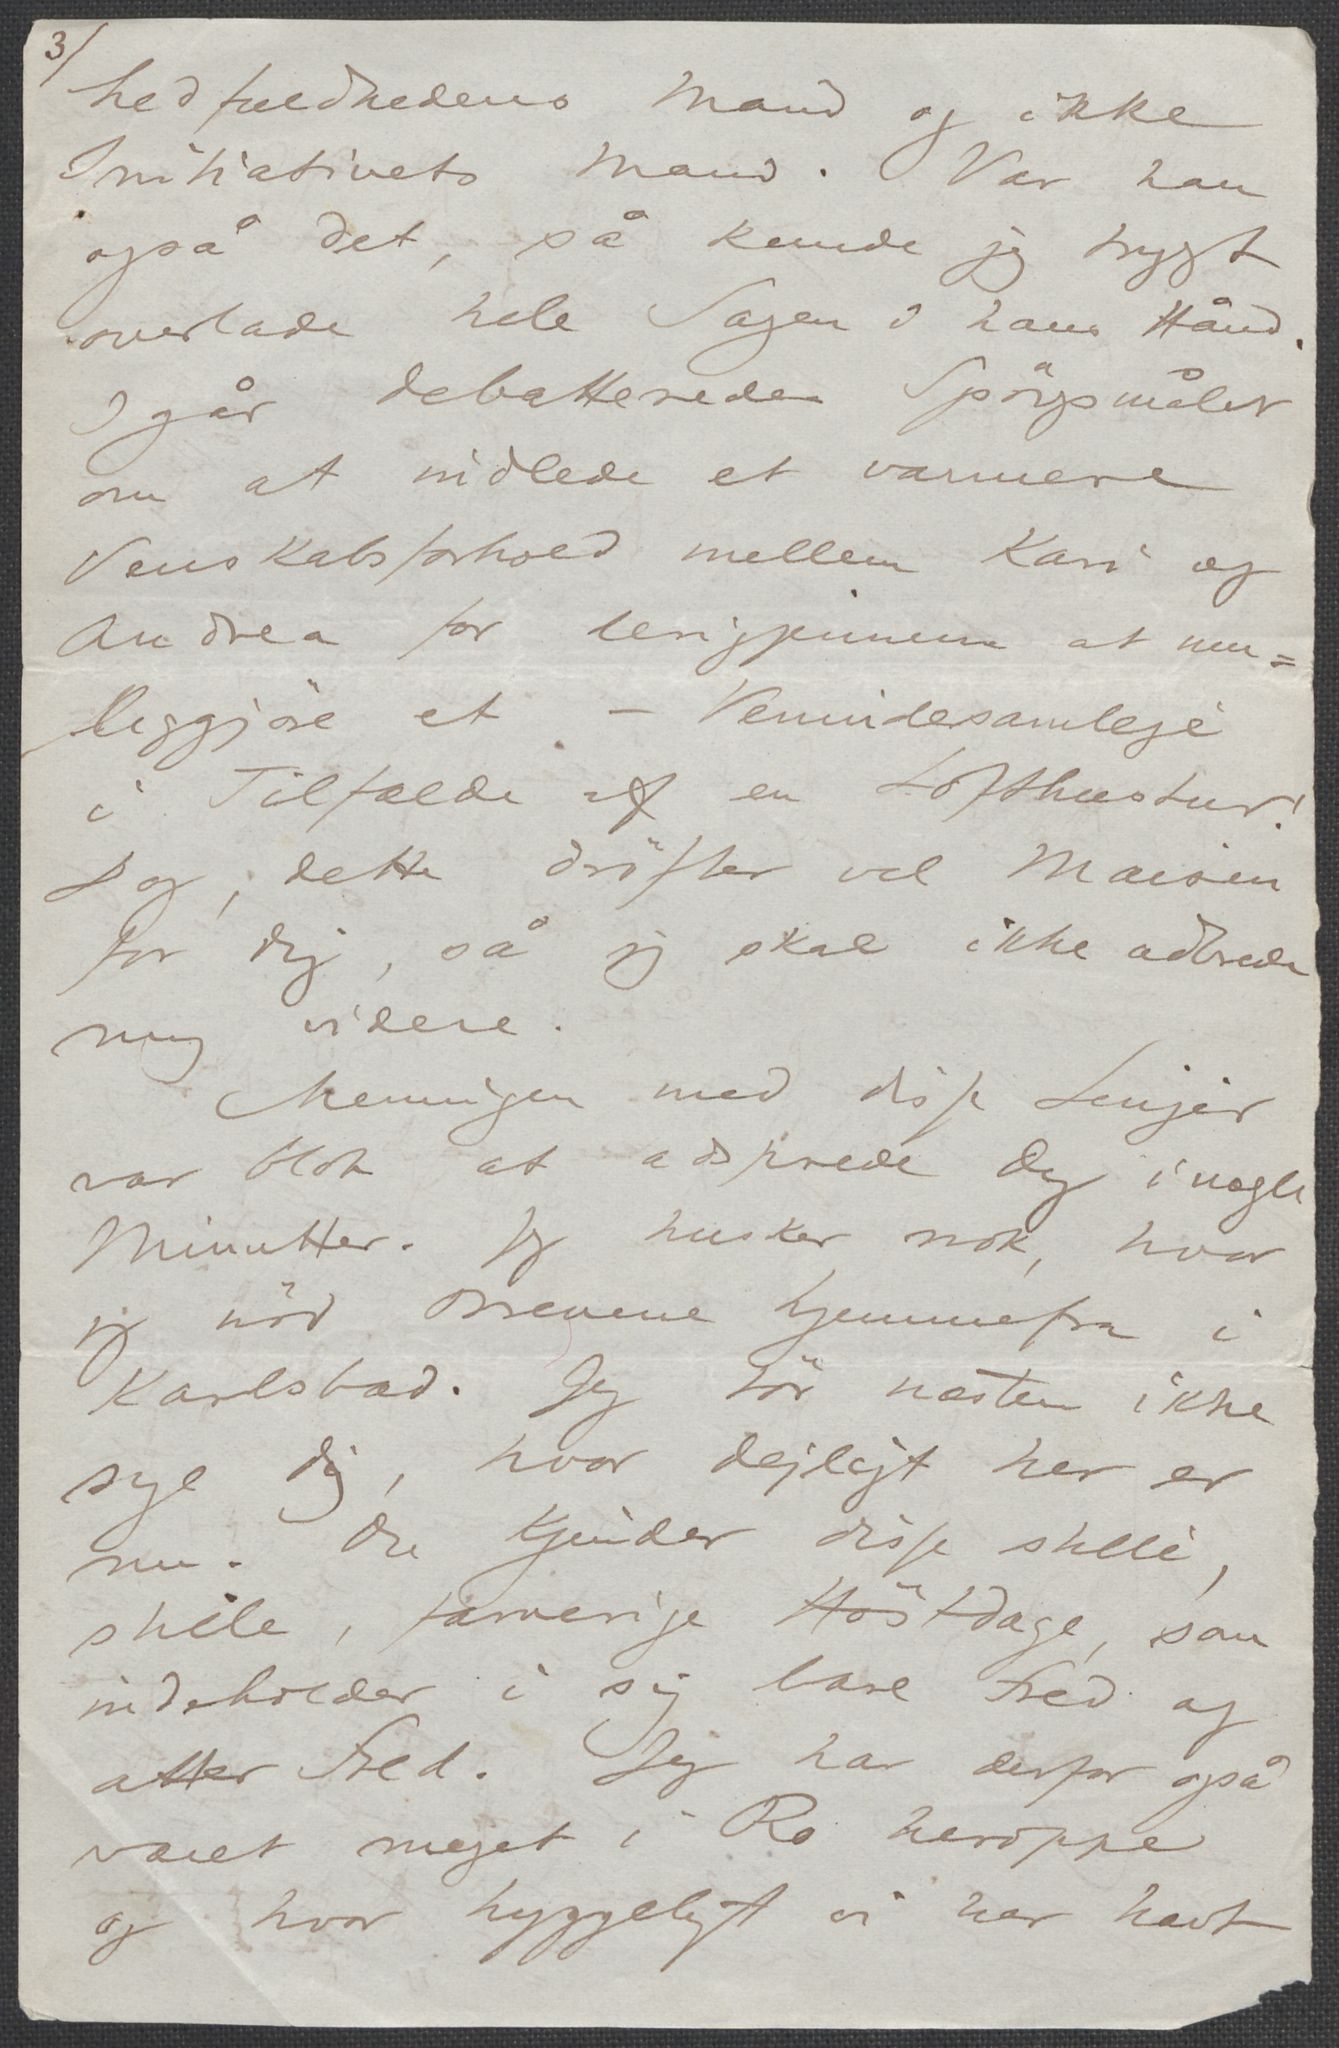 3/
hedfuldhedens Mand og ikke
Initiativets Mand. Var han
også det, så kunde jeg trygt
overlade hele Sagen i hans Hånd.
Igår debatterede Spörgsmålet
om at indlede et varmere
Venskabsforhold mellem Kari og
Andrea for derigjennem at mu=
liggjöre et – Venindesamleje
i Tilfælde af en Lofthustur!
Log, dette dröfter vel
for dig, så jeg skal ikke udbrede
mig videre.
Meningen med disse Linjer
var blot at adsprede dig i nogle
Minutter. Jeg husker nok, hvor
jeg nöd Brevene hjemmefra i
Karlsbad. Jeg tör næsten ikke
sige dig, hvor dejligt her er
nu. Du kjender disse stille,
stille, farverige Höstdage, som
indeholder i sig bare Fred og
atter Fred. Jeg har derfor også
været meget i Ro heroppe
og hvor hyggeligt vi har havt